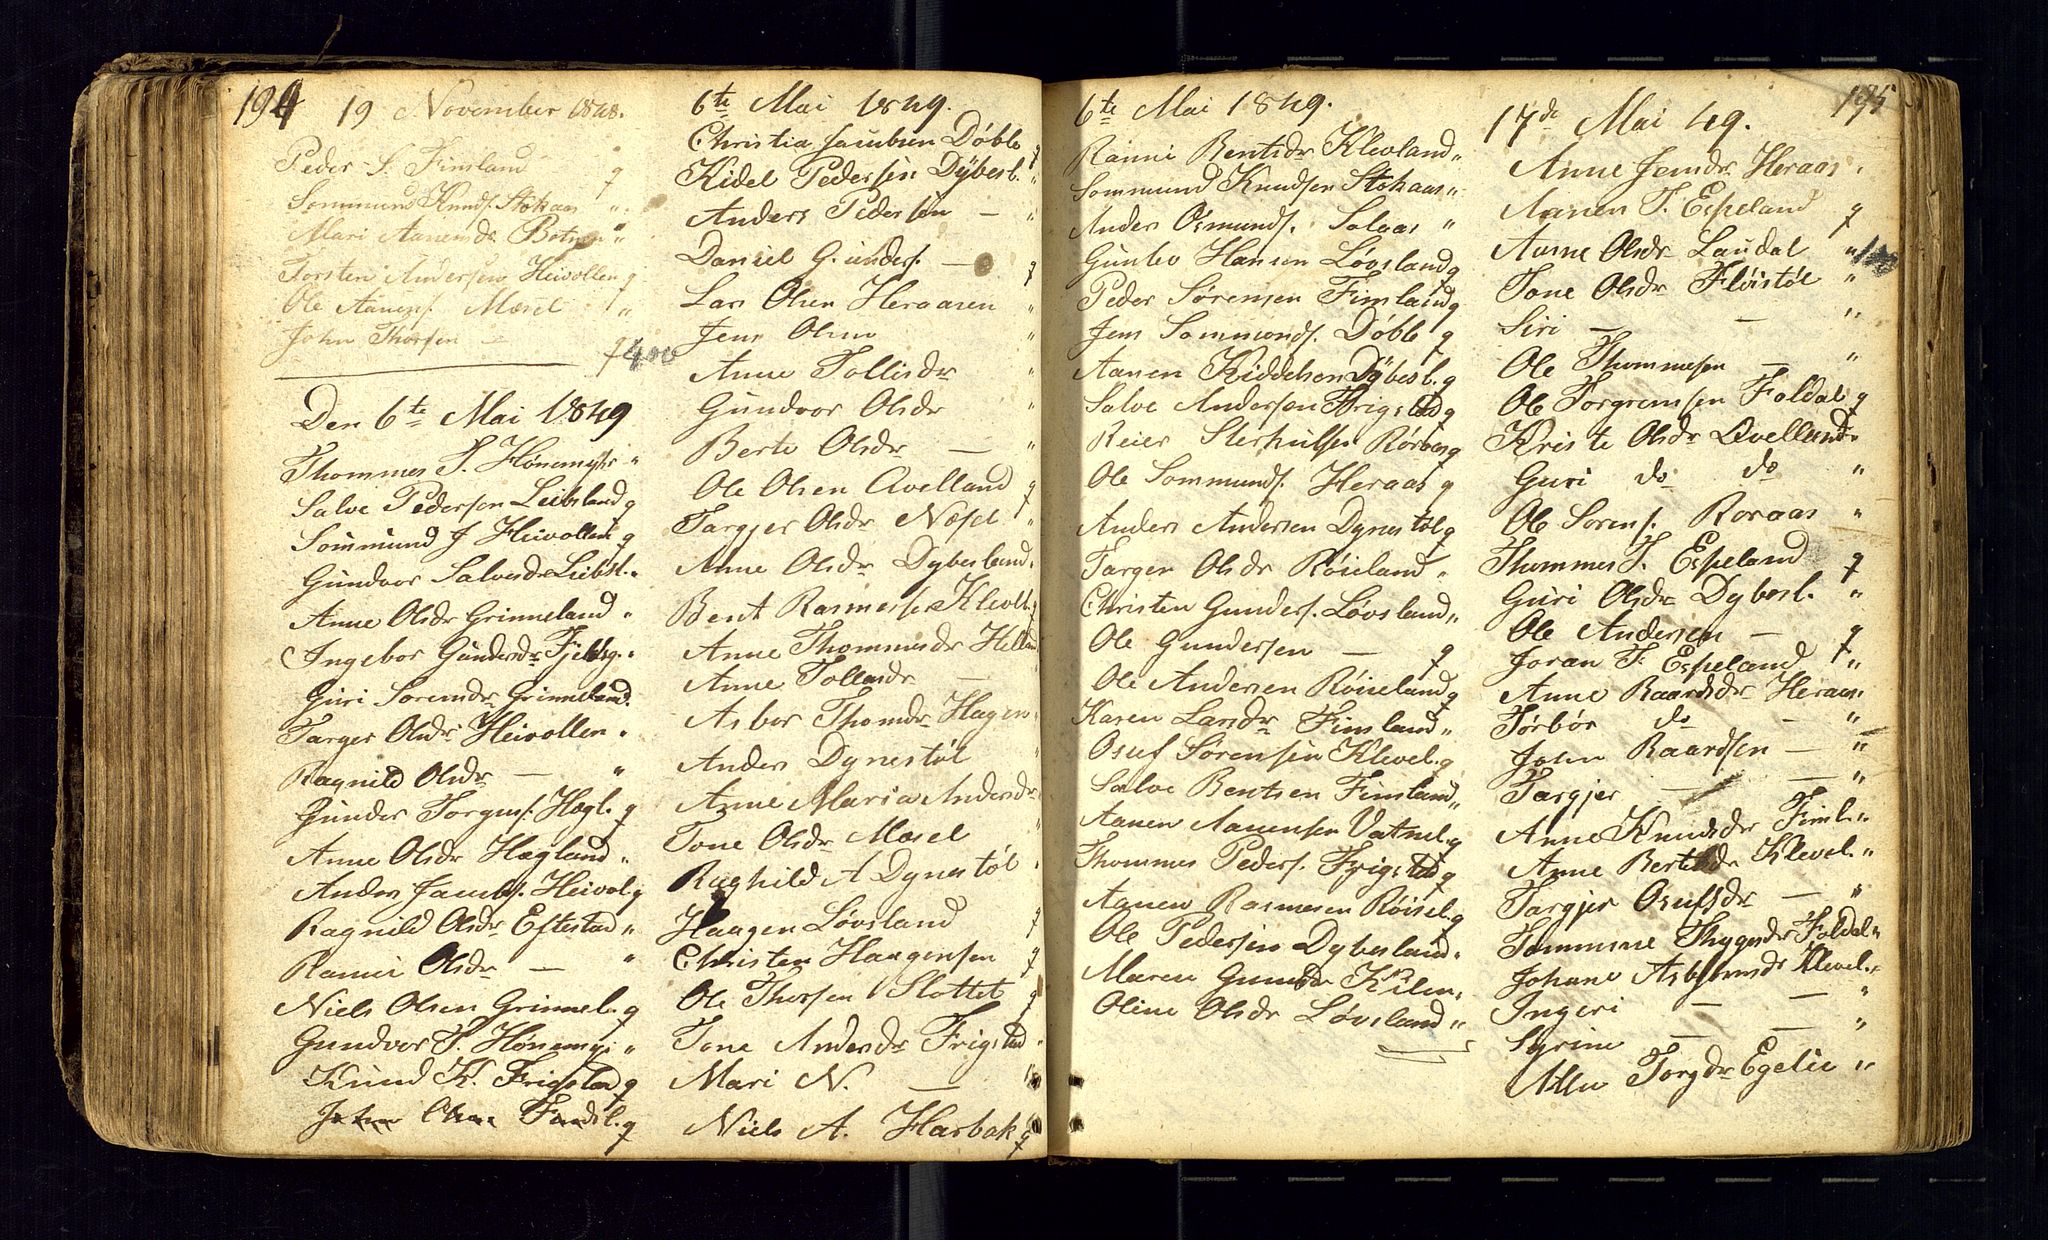 194
19 November 1848.
Peder S. Finsland g
Sommund Knuds. Stokaas "
Mari Aanensdr Botnen "
Torsten Andersen Heivollen g
Ole Aanens. Mæsel "
John Thorsen — g 400
Den 6te Mai 1849
Thommes T. Hønemyr "
Salve Pedersen Leibsland g
Sommund J Heivollen g
Gundvor Salvesdr Leibsl. "
Anne Olsdr Grinneland "
Ingebor Gundersdr Fjeldsg. "
Guri Sorensdr Grinneland
Targer Olsdr Heivollen "
Ragnild Olsdr — "
Gunder Torgus. Hægl. g
Anne Olsdr Hægland "
Anders Jacobs. Heivol g
Ragnild Olsdr Eftestad "
Ranni Olsdr — "
Niels Olsen Grinnel. g
Gundvor T. Hønemyr "
Knud K. Frigstad g
John Olsen Findsl. g
6te Mai 1849.
Christian Jacobsen Døble g
Kidel Pedersen Dÿbesl. "
Anders Pedersen — "
Daniel Gunders. — g
Lars Olsen Heraasen "
Jens Olsen "
Anne Tollisdr "
Gundvor Olsdr "
Berte Olsdr — "
Ole Olsen Qvelland g
Targjer Olsdr Næsel "
Anne Olsdr Dybesland "
Bent Rasmusse Klevel. g
Anne Thommesdr Helland
Anne Tollesdr —
Asbor Thomdr Hagen "
Anders Dynestøl "
Anne Maria Andersdr
Tone Olsdr Mæsel "
Raghild A Dynestøl "
Haagen Løvsland g
Christen Haagensen g
Ole Thorsen Slottet g
Tone Andersdr Frigstad "
Mari N. — "
Niels A. Harbak g
6te Mai 1849.
Ranni Bentsdr Klevland "
Sommund Knudsen Stokaas "
Anders Osmunds. Solaas "
Gunlev Hansen Løvsland g
Peder Sørensen Finsland g
Jens Sommonds. Døble g
Aanen Kiddelsen Dÿbesl. g
Salve Andersen Frigstad g
Reier Sterkulse Røraas g
Ole Sommunds. Heraas g
Anders Andersen Dynestøl g
Targer Olsdr Røiseland "
Christen Gunders. Løvsland "
Ole Gundersen — g
Ole Andersen Røiseland g
Karen Larsdr Finsland "
Osuf Sørensen Klevel. g
Salve Bentsen Finsland "
Aanen Aanensen Vatnel. g
Thommes Peders. Frigstad g
Aanen Rasmusen Røisel. g
Ole Pedersen Dybesland "
Maren Gundsdr Kilen "
Oline Olsdr Løvsland "
195
17de Mai 49.
Anne Jensdr Heraas "
Aanen T. Espeland g
Aasne Olsdr Laudal "
Tone Olsdr Fløistøl "
Siri — — "
Ole Thommesen — "
Ole Torgremsen Foldal g
Kriste Olsdr Qvelland "
Guri do do "
Ole Sorens. Roraas "
Thommes T. Espeland g
Guri Olsdr Dybesl. "
Ole Andersen — g
Joran T. Espeland "
Anne Baardsdr Heraas "
Torbor do — "
John Baardsen — "
Targjer — — "
Anne Knudsdr Finsl. "
Anne Bertsdr Klevel. "
Targjer Osufsdr — "
Tommine Thygesdr Foldal "
Johane Asbjørnsdr Klevel. "
Ingeri — — "
Syrine — — "
Torgdr Egelie "